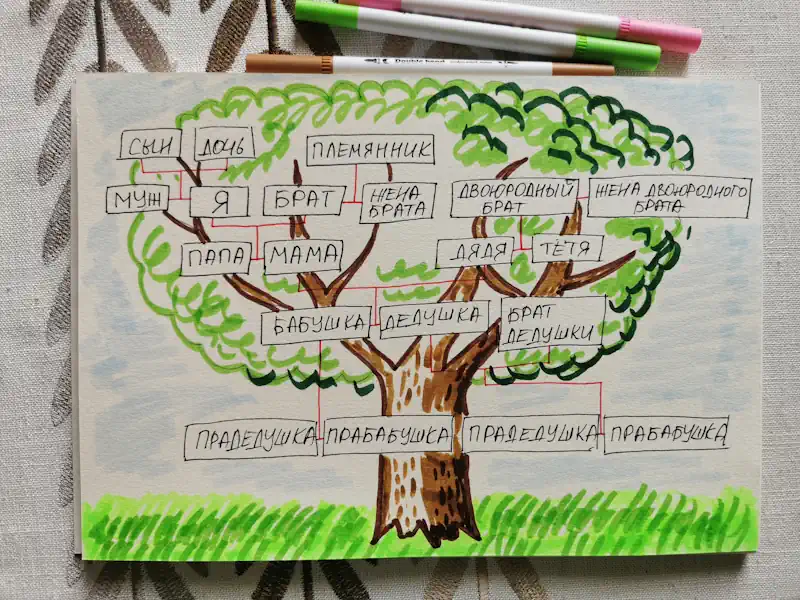 СЫН ДОЧЬ ПЛЕМЯННИК
МУЖ Я БРАТ ЖЕНА БРАТА ДВОЮРОДНЫЙ БРАТ ЖЕНА ДВОЮРОДНОГО БРАТА
ПАПА МАМА ДЯДЯ ТЁТЯ
БАБУШКА ДЕДУШКА БРАТ ДЕДУШКИ
ПРАДЕДУШКА ПРАБАБУШКА ПРАДЕДУШКА ПРАБАБУШКА